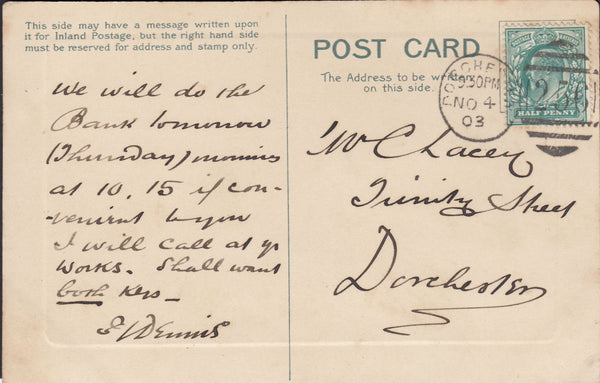 This side may have a message written upon
it for Inland Postage, but the right hand side
must be reserved for address and stamp only.
We will do the
Bank tomorrow
(Thursday) morning
at 10.15 if con-
-venient to you
I will call at yr
works. Shall want
both keys -
POST CARD
The Address to be
on this side.
9.30PM
NO 4
03
HALF PENNY
Lacey
Trinity Street
Dorchester